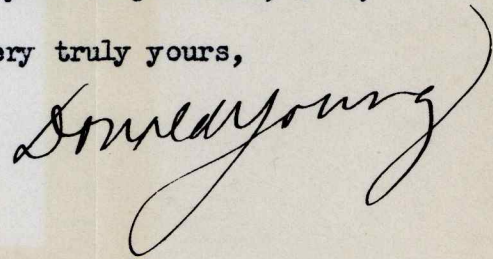 ery truly yours,
Donald Young